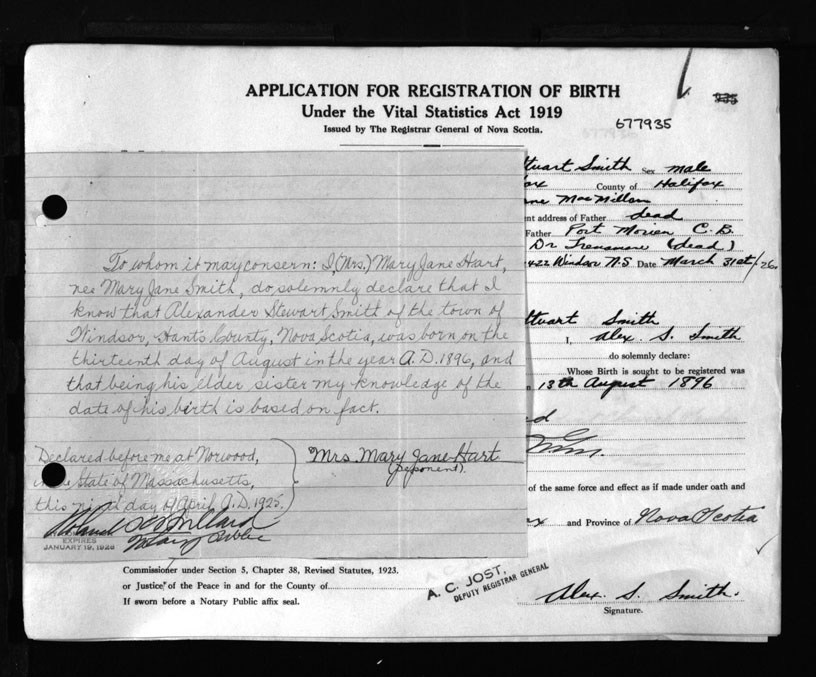 APPLICATION FOR REGISTRATION OF BIRTH
Under the Vital Statistics Act 1919
Issued by The Registrar General of Nova Scotia.
677935
Stuart Smith Sex male
County of Halifax
Mac Millan
address of Father dead
Father Port Morien C.B.
Dr (dead)
422 Windsor N.S. Date March 31st/26
To whom it may consern: I (Mrs.) Mary Jane Hart,
nee Mary Jane Smith, do solemnly declare that I
know that Alexander Stewart Smith of the town of
Windsor, Hants County, Nova Scotia, was born on the
thirteenth day of August in the year A.D. 1896, and
that being his elder sister my knowledge of the
date of his birth is based on fact.
Declared before me at Norwood,
in the State of Massachusetts,
this day of April A.D. 1925.
Mrs. Mary Jane Hart
(Deponent).
Notary Public
EXPIRES
JANUARY 19, 1928
Stuart Smith
I, Alex. S. Smith
do solemnly declare:
Whose Birth is sought to be registered was
13th August 1896
of the same force and effect as if made under oath and
and Province of Nova Scotia
Commissioner under Section 5, Chapter 38, Revised Statutes, 1923.
or Justice of the Peace in and for the County of
If sworn before a Notary Public affix seal.
A. C. JOST,
DEPUTY REGISTRAR GENERAL
Alex. S. Smith.
Signature.